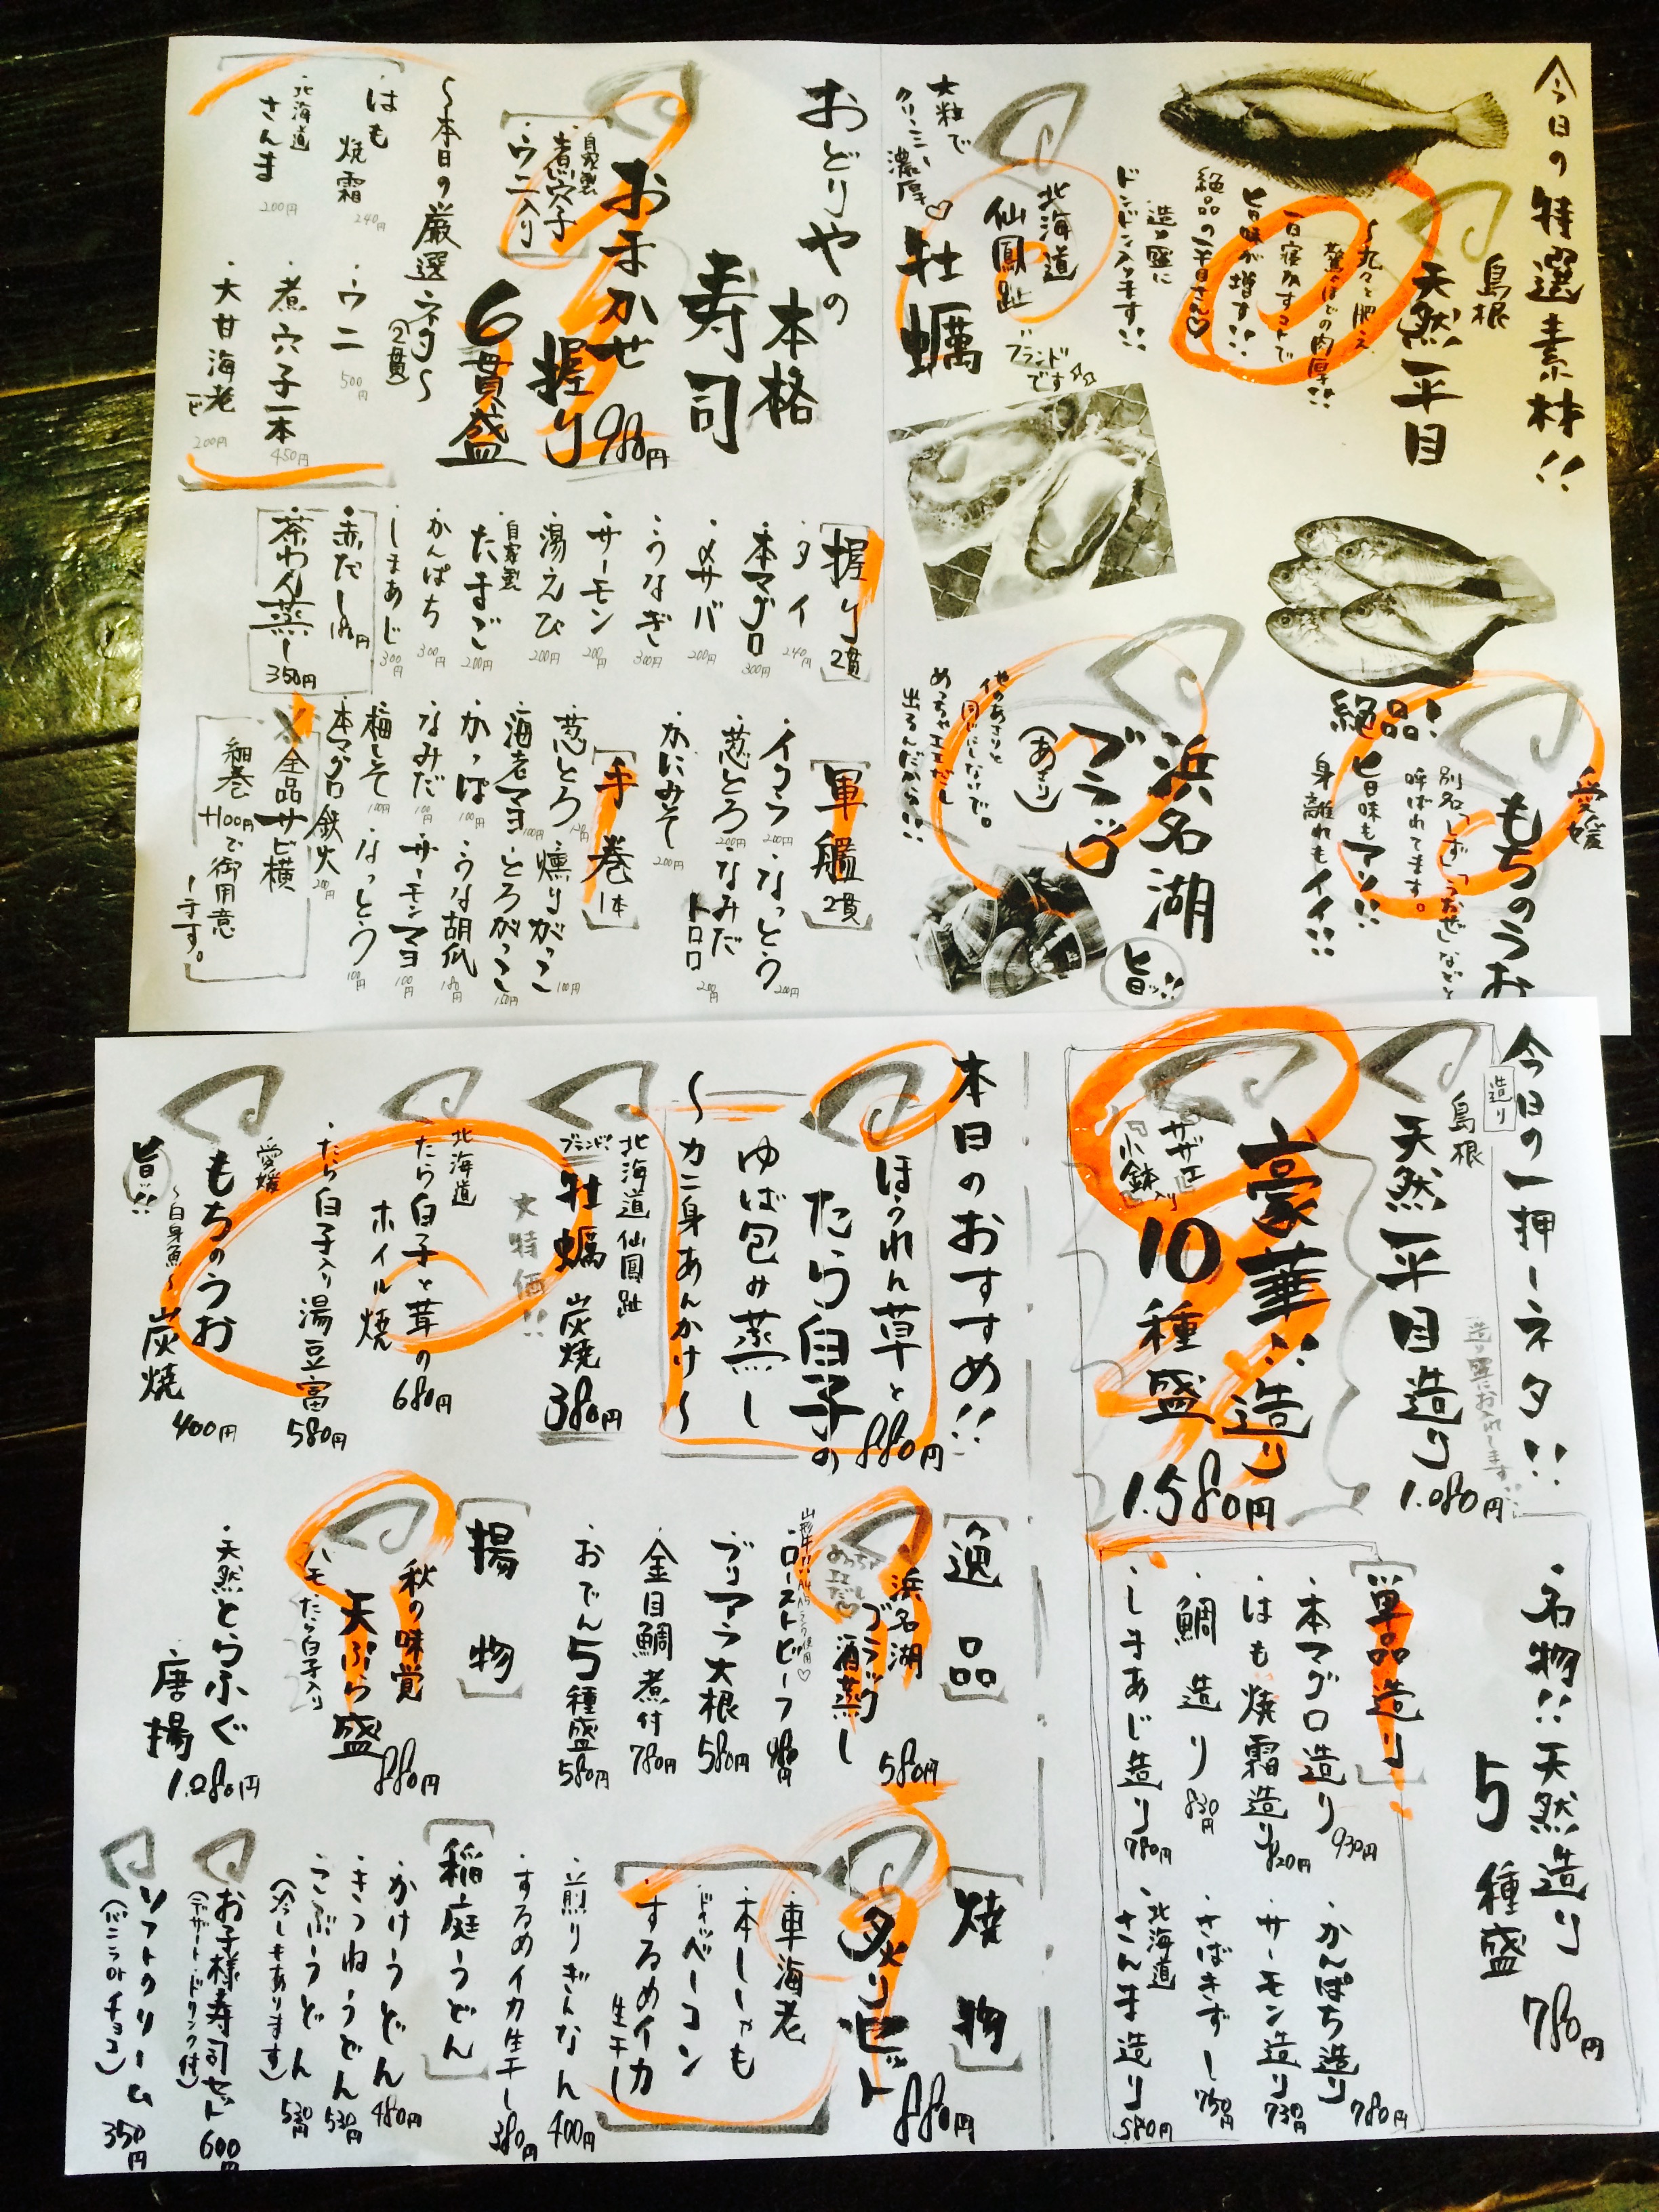 今日の特選素材!!
島根
天然平目
〜丸々と肥え
驚くほどの肉厚!!
一日寝かすコトで
旨味が増す!!
絶品の平目さん♡
造り盛に
ドンドン入ります!!
愛媛
もちのうお
別名「しず」「うおぜ」などと
呼ばれてます。
旨味もアリ!!
身離れもイイ!!
絶品!
北海道
仙鳳趾
ブランドです☆☆
牡蠣
大粒で
クリーミー、濃厚♡
浜名湖
ブラック
(あさり)
他のあさりと
同じにしないで。
めっちゃエエだし
出るんだから!!
旨ッ!!
おどりやの
本格
寿司
おまかせ
握り
6貫盛
980円
自家製
煮穴子
・ウニ入り
〜本日の厳選ネタ〜
(2貫)
・はも
焼霜
240円
・ウニ
500円
・北海道
さんま
200円
・煮穴子一本
450円
・大甘海老
200円
握り
2貫
・タイ
240円
・本マグロ
300円
・〆サバ
200円
・うなぎ
300円
・サーモン
200円
・湯えび
200円
・自家製
たまご
200円
・かんぱち
300円
・しまあじ
300円
・赤だし
180円
・茶わん蒸し
350円
軍艦
2貫
・イクラ
200円
・なっとう
200円
・葱とろ
200円
・なみだ
トロロ
200円
・かにみそ
200円
手巻
1本
・葱とろ
120円
・燻りがっこ
100円
・海老マヨ
100円
・とろがっこ
150円
・かっぱ
100円
・うな胡瓜
180円
・なみだ
100円
・サーモンマヨ
100円
・梅しそ
100円
・なっとう
100円
・本マグロ鉄火
200円
全品サビ横
細巻
+100円で御用意
します。
今日の一押しネタ!!
造り
島根
天然平目造り
1.080円
造り盛にお入れします!!
豪華!!造り
10種盛
1.580円
サザエ
小鉢入り
名物!!天然造り
5種盛
780円
単品造り
・本マグロ造り
930円
・はも焼霜造り
820円
・鯛造り
830円
・しまあじ造り
780円
・かんぱち造り
780円
・サーモン造り
730円
・さばきずし
750円
・北海道
さんま造り
580円
本日のおすすめ!!
ほうれん草と
たら白子の
ゆば包み蒸し
〜カニ身あんかけ〜
880円
北海道仙鳳趾
ブランド!!
牡蠣 炭焼
380円
大特価!!
北海道
・たら白子と茸の
ホイル焼
680円
・たら白子入り湯豆富
580円
愛媛
もちのうお
〜白身魚〜
炭焼
400円
旨!!
逸品
浜名湖
ブラック
酒蒸し
580円
めっちゃ
エエだし♡
・ローストビーフ
・ブリアラ大根
580円
・金目鯛煮付
780円
・おでん5種盛
580円
揚物
秋の味覚
天ぷら盛
880円
ハモ、たら白子入り
・天然とらふぐ
唐揚
1.080円
焼物
炙りセット
880円
・車海老
・本ししゃも
・ドデカベーコン
・するめイカ
生干し
・煎りぎんなん
400円
・するめイカ生干し
380円
稲庭うどん
・かけうどん
480円
・きつねうどん
530円
・こぶうどん
530円
(冷しもあります)
お子様寿司セット
(デザート・ドリンク付)
600円
ソフトクリーム
(バニラorチョコ)
350円